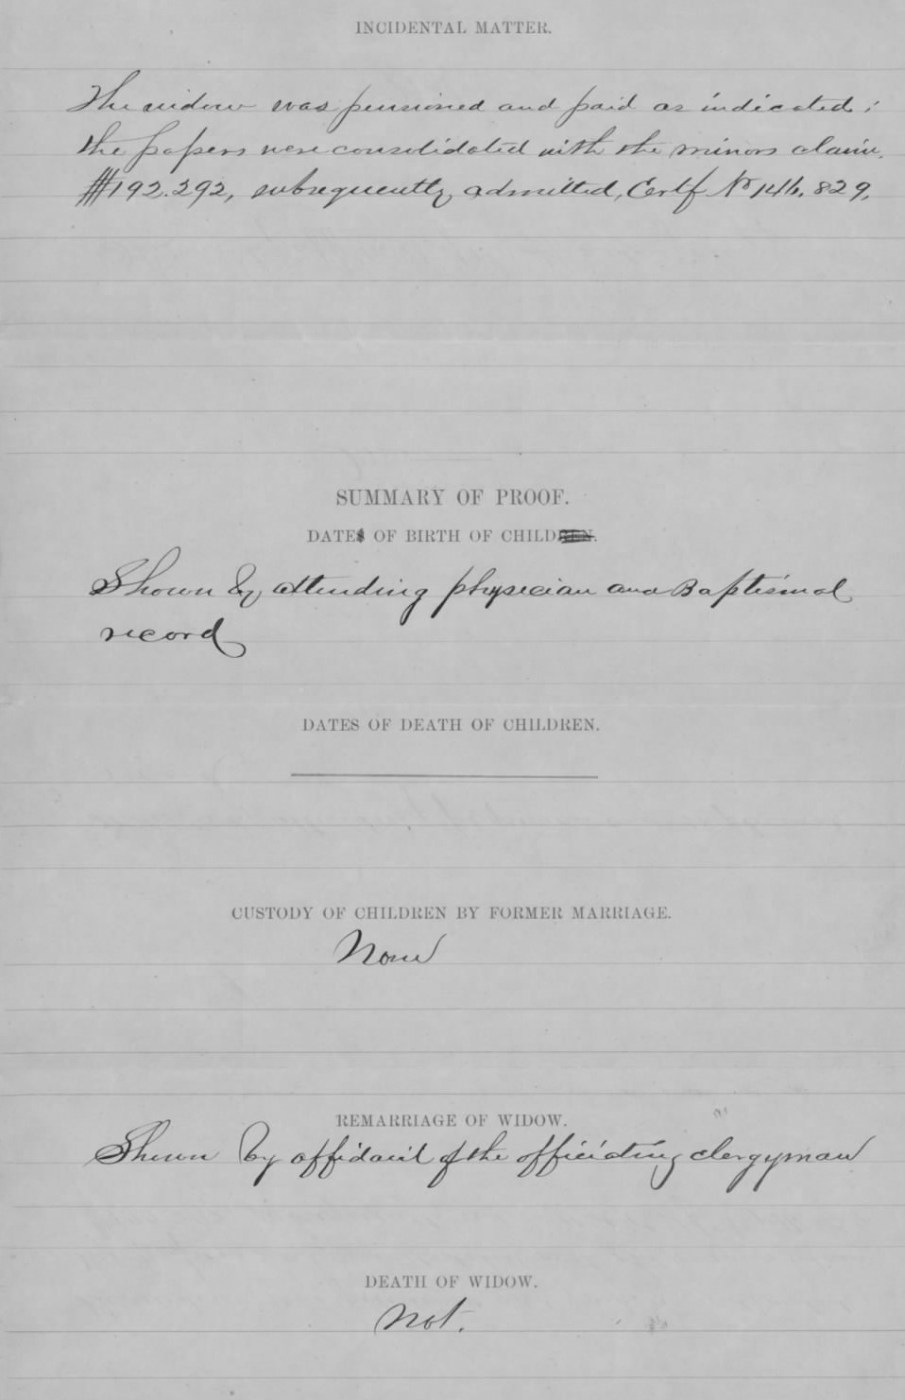 INCIDENTAL MATTER.
The widow was pensioned and paid as indicated;
the papers were consolidated with the minors claim,
#192.292, subsequently admitted, Certf No 146.829.
SUMMARY OF PROOF.
DATES OF BIRTH OF CHILDREN.
Shown by attending physician and Baptismal
record
DATES OF DEATH OF CHILDREN.
CUSTODY OF CHILDREN BY FORMER MARRIAGE.
None
REMARRIAGE OF WIDOW.
Shown by affidavit of the officiating clergyman
DEATH OF WIDOW.
Not.